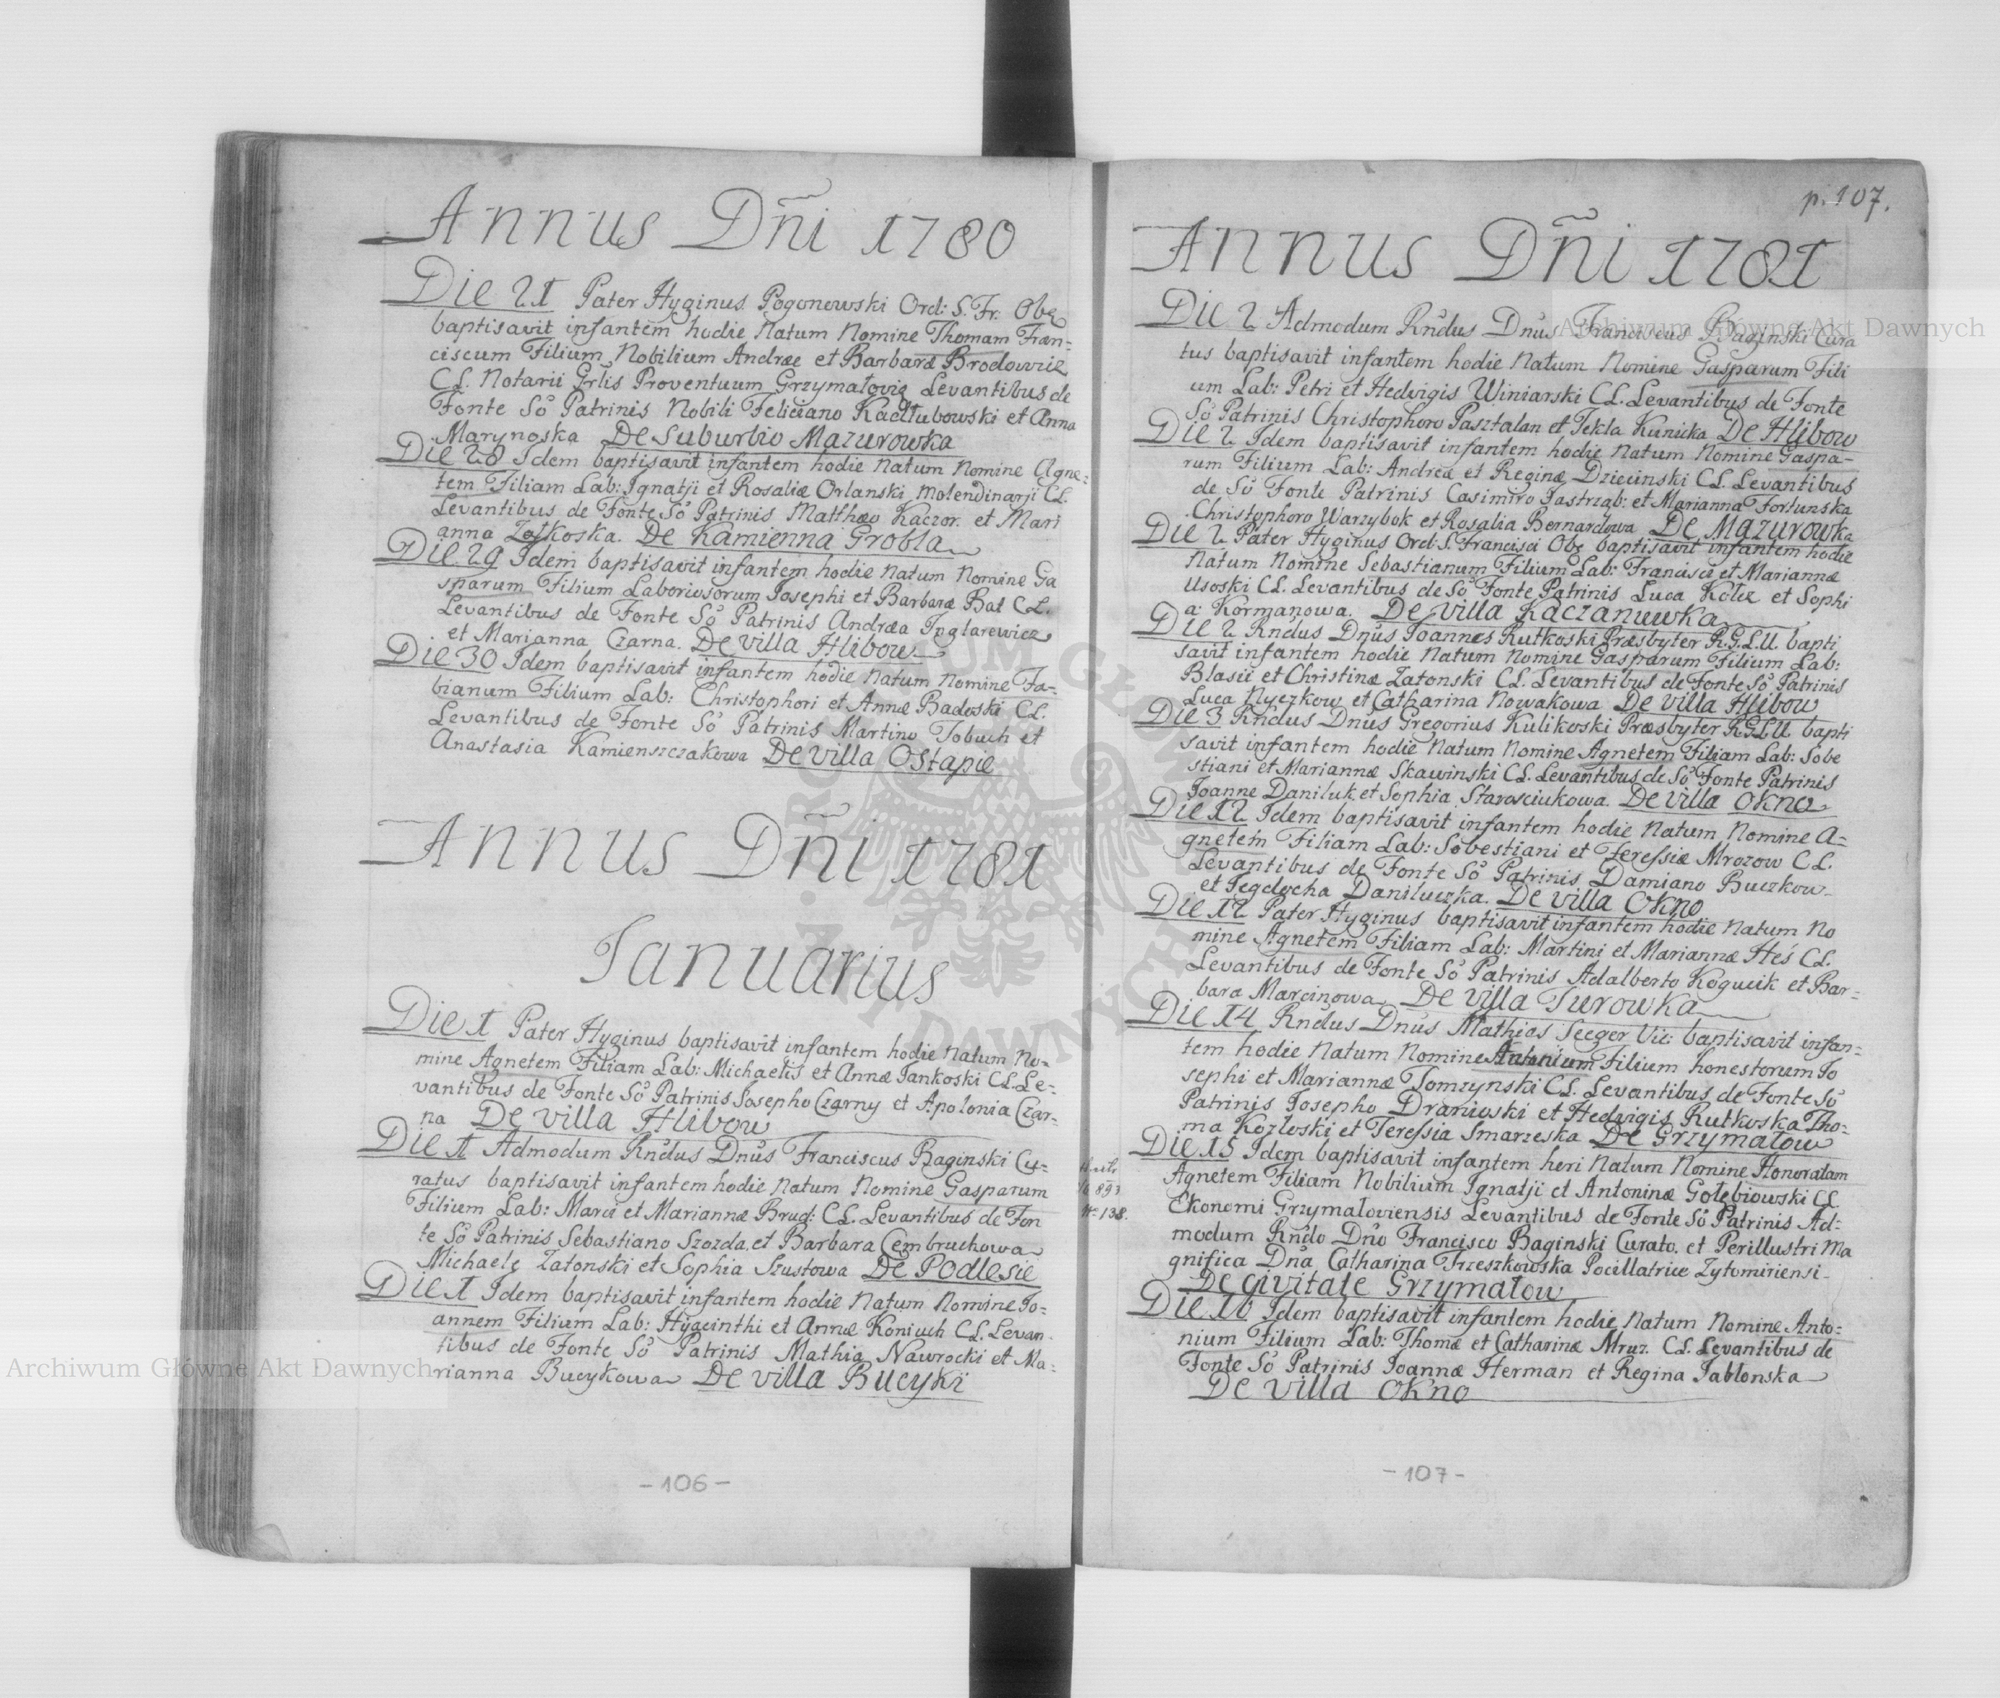 Annus Dñi 1780
Die 21 Pater Hyginus Pogonowski Ord: S. Fr: Obs
baptisavit infantem hodie Natum Nomine Thomam Fran=
ciscum Filium Nobilium Andræ et Barbaræ Brodowicz
CL. Notarii Grlis Proventuum Grzymałoviæ Levantibus de
Fonte So Patrinis Nobili Feliciano Kadłubowski et Anna
Marynoska De Suburbio Mazurowka
Die 28 Idem baptisavit infantem hodie Natum Nomine Agne=
tem Filiam Lab: Ignatji et Rosaliæ Orlanski Molendinarji CL.
Levantibus de Fonte So Patrinis Matthæo Kaczor. et Mari
anna Zołkoska. De Kamienna Grobla
Die 29 Idem baptisavit infantem hodie Natum Nomine Ga
sparum Filium Laboriosorum Josephi et Barbaræ Bał CL.
Levantibus de Fonte So Patrinis Andræa
et Marianna Czarna. De Villa Hlibow
Die 30 Idem baptisavit infantem hodie Natum Nomine Fa=
bianum Filium Lab: Christophori et Annæ Badoski CL.
Levantibus de Fonte So Patrinis Martino Tobuch et
Anastasia Kamienszczakowa De Villa Ostapie
Annus Dñi 1781
Januarius
Die 1 Pater Hyginus baptisavit infantem hodie Natum No=
mine Agnetem Filiam Lab: Michaelis et Annæ Jankoski CL. Le=
vantibus de Fonte So Patrinis Josepho Czarny et Apolonia Czar=
na De Villa Hlibow
Die 1 Admodum Rndus Dnus Franciscus Baginski Cu=
ratus baptisavit infantem hodie Natum Nomine Gasparum
Filium Lab: Marci et Mariannæ Brud: CL. Levantibus de Fon
te So Patrinis Sebastiano Szozda et Barbara Cembruchowa
Michaele Zatonski et Sophia Szustowa De Podlesie
Die 1 Idem baptisavit infantem hodie Natum Nomine Jo=
annem Filium Lab: Hyacinthi et Annæ Koniuch CL. Levan=
tibus de Fonte So Patrinis Mathia Nawrocki et Ma=
rianna Bucykowa De Villa Bucyki
-106-
p. 107.
Annus Dñi 1781
Die 2 Admodum Rndus Dnus Franciscus Baginski Cura
tus baptisavit infantem hodie Natum Nomine Gasparum Fili
um Lab: Petri et Hedvigis Winiarski CL. Levantibus de Fonte
So Patrinis Christophoro Pasztalan et Tekla Kunicka De Hlibow
Die 2 Idem baptisavit infantem hodie Natum Nomine Gaspa=
rum Filium Lab: Andreæ et Reginæ Dziecinski CL. Levantibus
de So Fonte Patrinis Casimiro Jastrząb: et Marianna Fortunska
Christophoro Warzybok et Rosalia Bernardowa De Mazurowka
Die 2 Pater Hyginus Ord: S. Francisci Obs baptisavit infantem hodie
Natum Nomine Sebastianum Filium Lab: Francisci et Mariannæ
Usoski CL. Levantibus de So Fonte Patrinis Luca et Sophi
a Kormanowa. De Villa Kaczanuwka
Die 2 Rndus Dnus Joannes Rutkoski Præsbyter R.G.L.U. bapti
savit infantem hodie Natum Nomine Gasparum Filium Lab:
Blasii et Christinæ Zatonski CL. Levantibus de Fonte So Patrinis
Luca Nyczkow et Catharina Nowakowa De Villa Hlibow
Die 3 Rndus Dnus Gregorius Kulikoski Præsbyter R.G.L.U bapti
savit infantem hodie Natum Nomine Agnetem Filiam Lab: Sobe
stiani et Mariannæ Skawinski CL. Levantibus de So Fonte Patrinis
Joanne Daniluk et Sophia Starosciukowa. De Villa Okno
Die 12 Idem baptisavit infantem hodie Natum Nomine A=
gnetem Filiam Lab: Sobestiani et Teressiæ Mrozow CL.
Levantibus de Fonte So Patrinis Damiano Buczkow
et Jegdocha Daniluczka. De Villa Okno
Die 12 Pater Hyginus baptisavit infantem hodie Natum No
mine Agnetem Filiam Lab: Martini et Mariannæ Heś CL.
Levantibus de Fonte So Patrinis Adalberto Kogucik et Bar=
bara Marcinowa De Villa Turowka
Die 14 Rndus Dnus Mathias Seeger Vic: baptisavit infan=
tem hodie Natum Nomine Antonium Filium honestorum Jo
sephi et Mariannæ Tomzynski CL. Levantibus de Fonte So
Patrinis Josepho Dranioski et Hedvigis Rutkoska Tho=
ma Kozłoski et Teressia Smarzeska De Grzymałow
Die 15 Idem baptisavit infantem heri Natum Nomine Honoratam
Agnetem Filiam Nobilium Ignatji et Antoninæ Gołębiowski CL
Ekonomi Grzymałoviensis Levantibus de Fonte So Patrinis Ad=
modum Rndo Dno Francisco Baginski Curato. et Perillustri Ma
gnifica Dna Catharina Trzeszkowska Pocillatrice Zytomiriensi
De Civitate Grzymałow
Die 16 Idem baptisavit infantem hodie Natum Nomine Anto=
nium Filium Lab: Thomæ et Catharinæ Mruz. CL. Levantibus de
Fonte So Patrinis Joannæ Herman et Regina Jablonska
De Villa Okno
-107-
Archiwum Główne Akt Dawnych
Archiwum Główne Akt Dawnych